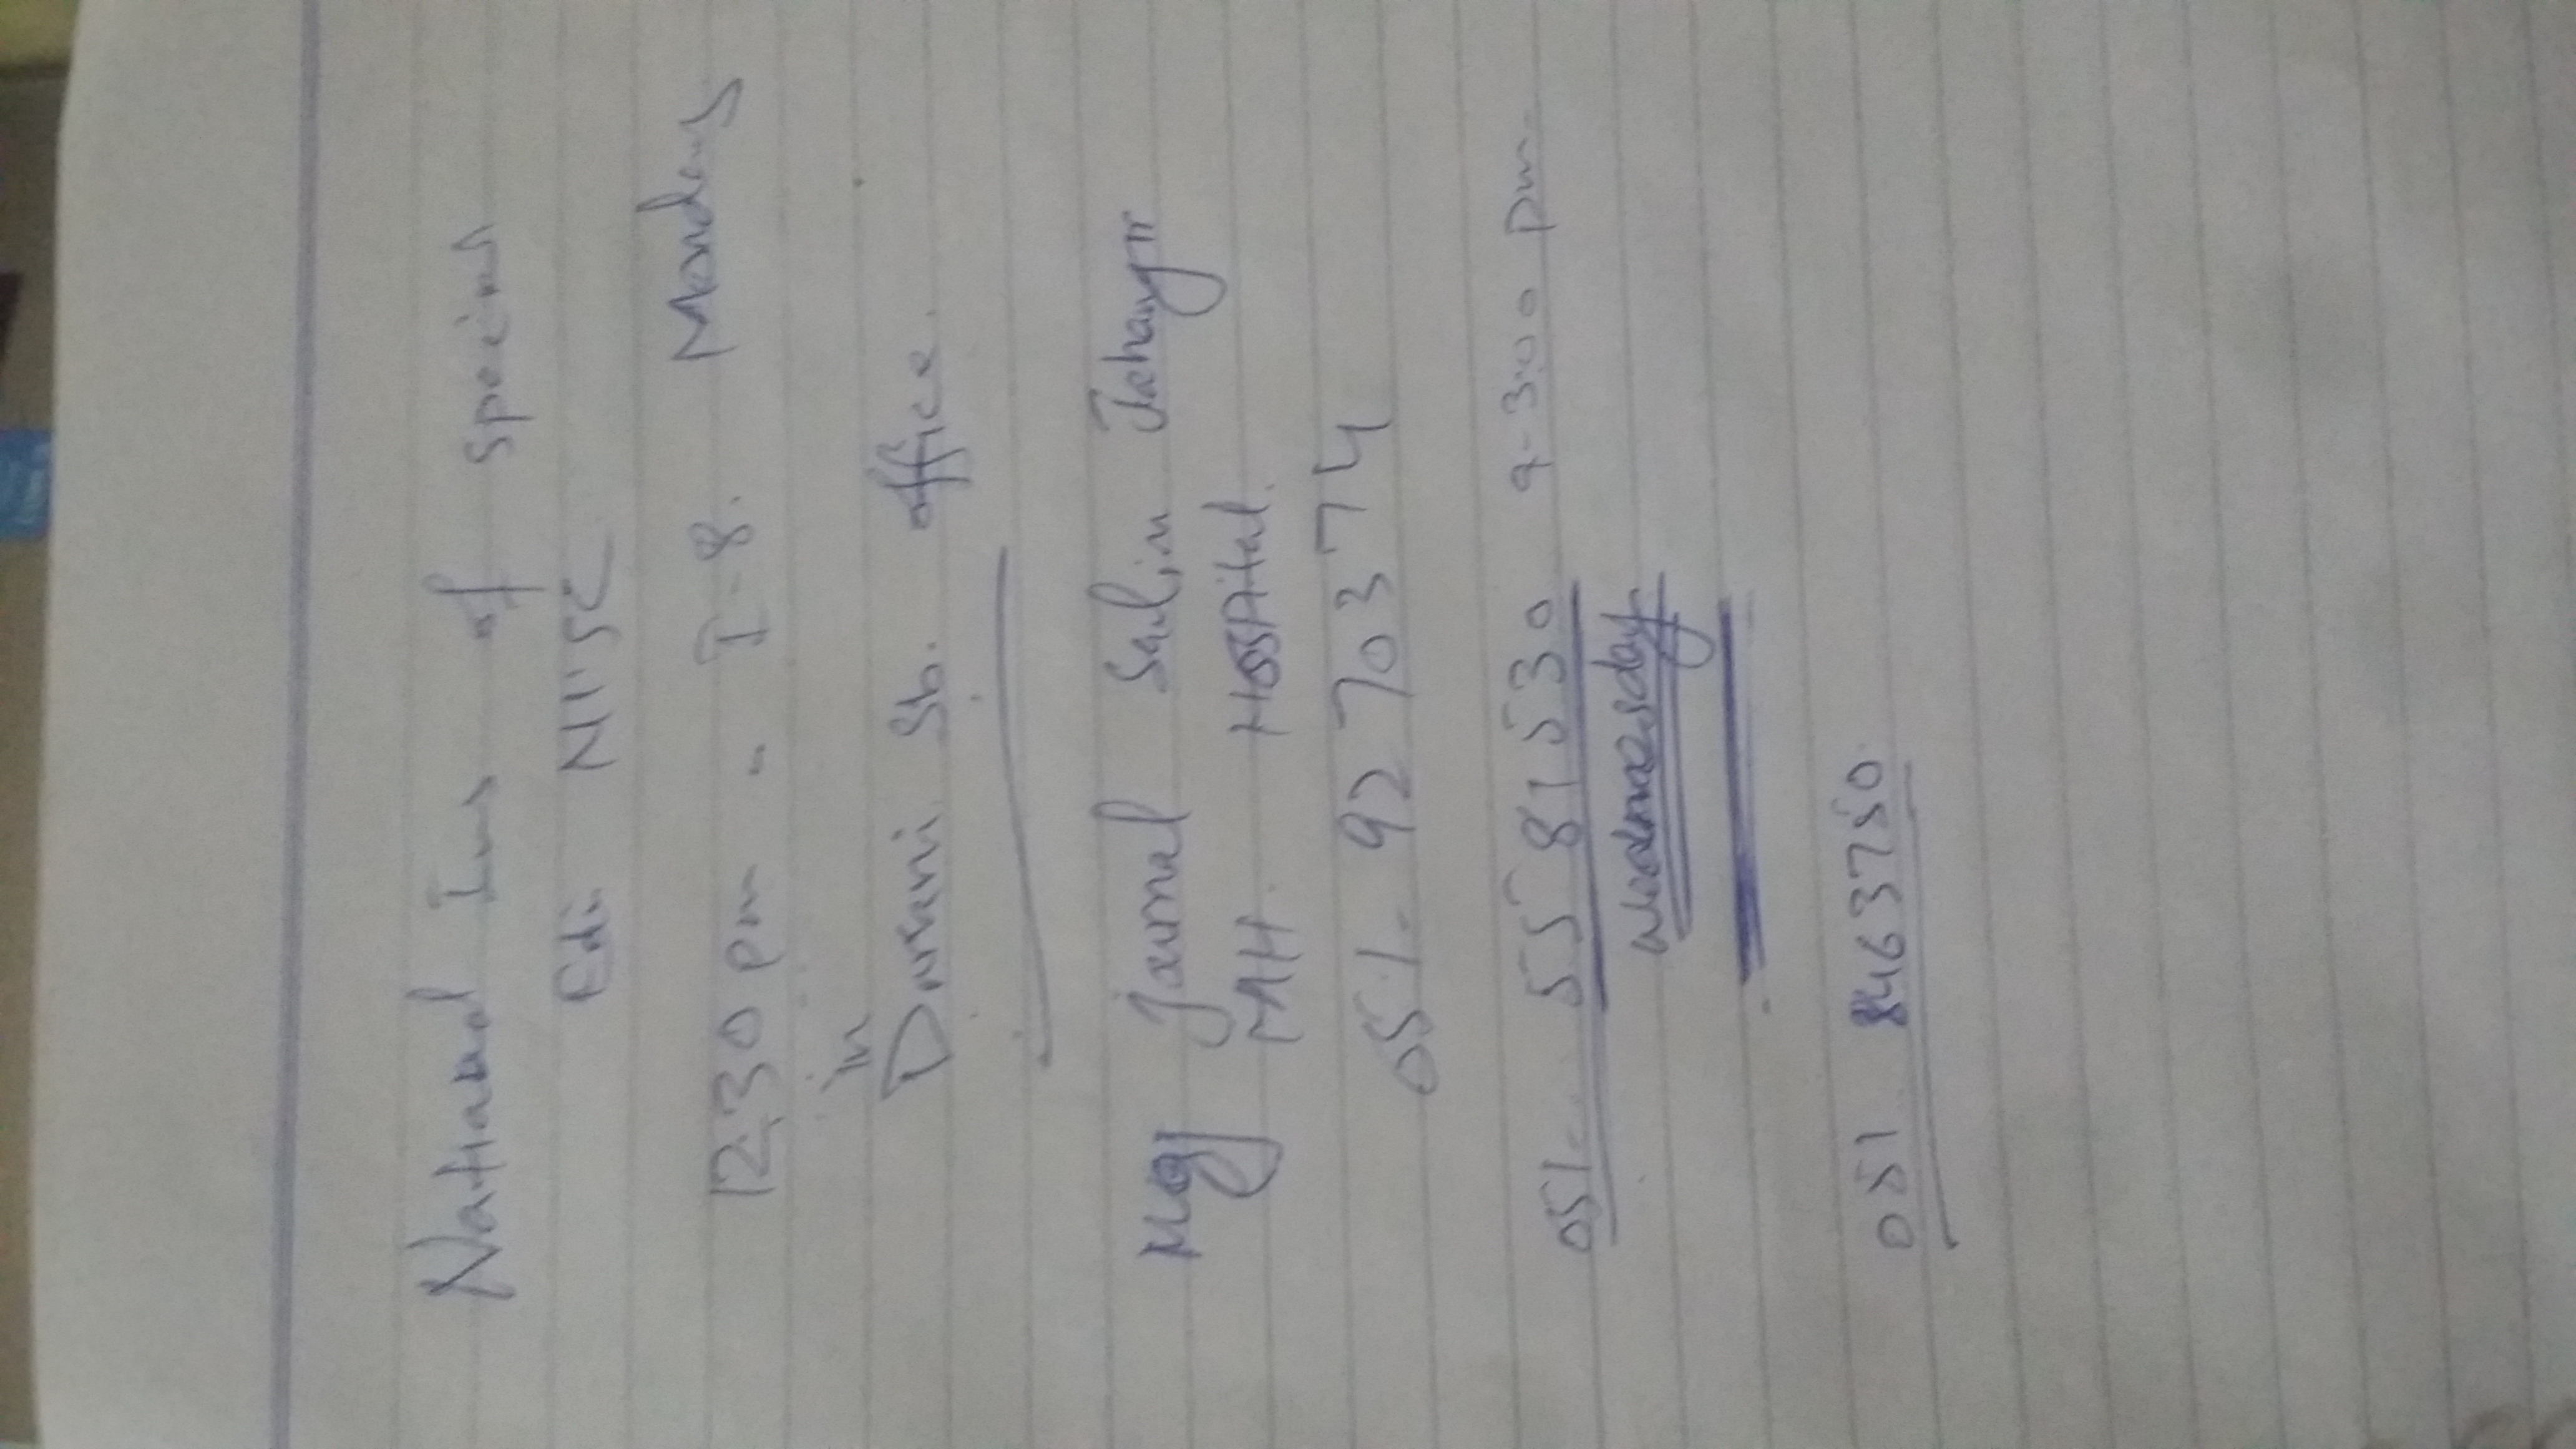 National Ins of special
Edu NIISC
12,30 pm - I-8. Monday
in
Durrani Sb. office.
Maj Jamal Salim Jahangir
MH. HOSPital.
051- 9270374
051- 5581530 9-3:00 pm
wednesday
051 8463750